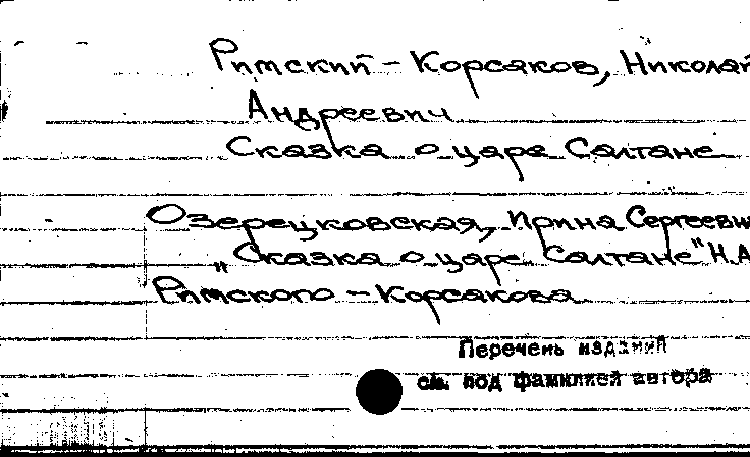 Римский - Корсаков, Николай
Андреевич
Сказка о царе Салтане
Озерецковская, Ирина Сергеевн
„Сказка о царе Салтане" Н.А
Римского - Корсакова
Перечень изданий
см. под фамилией автора